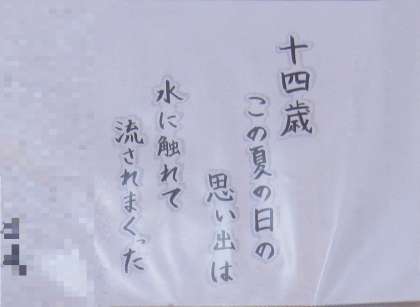 十四歳
この夏の日の
思い出は
水に触れて
流されまくった